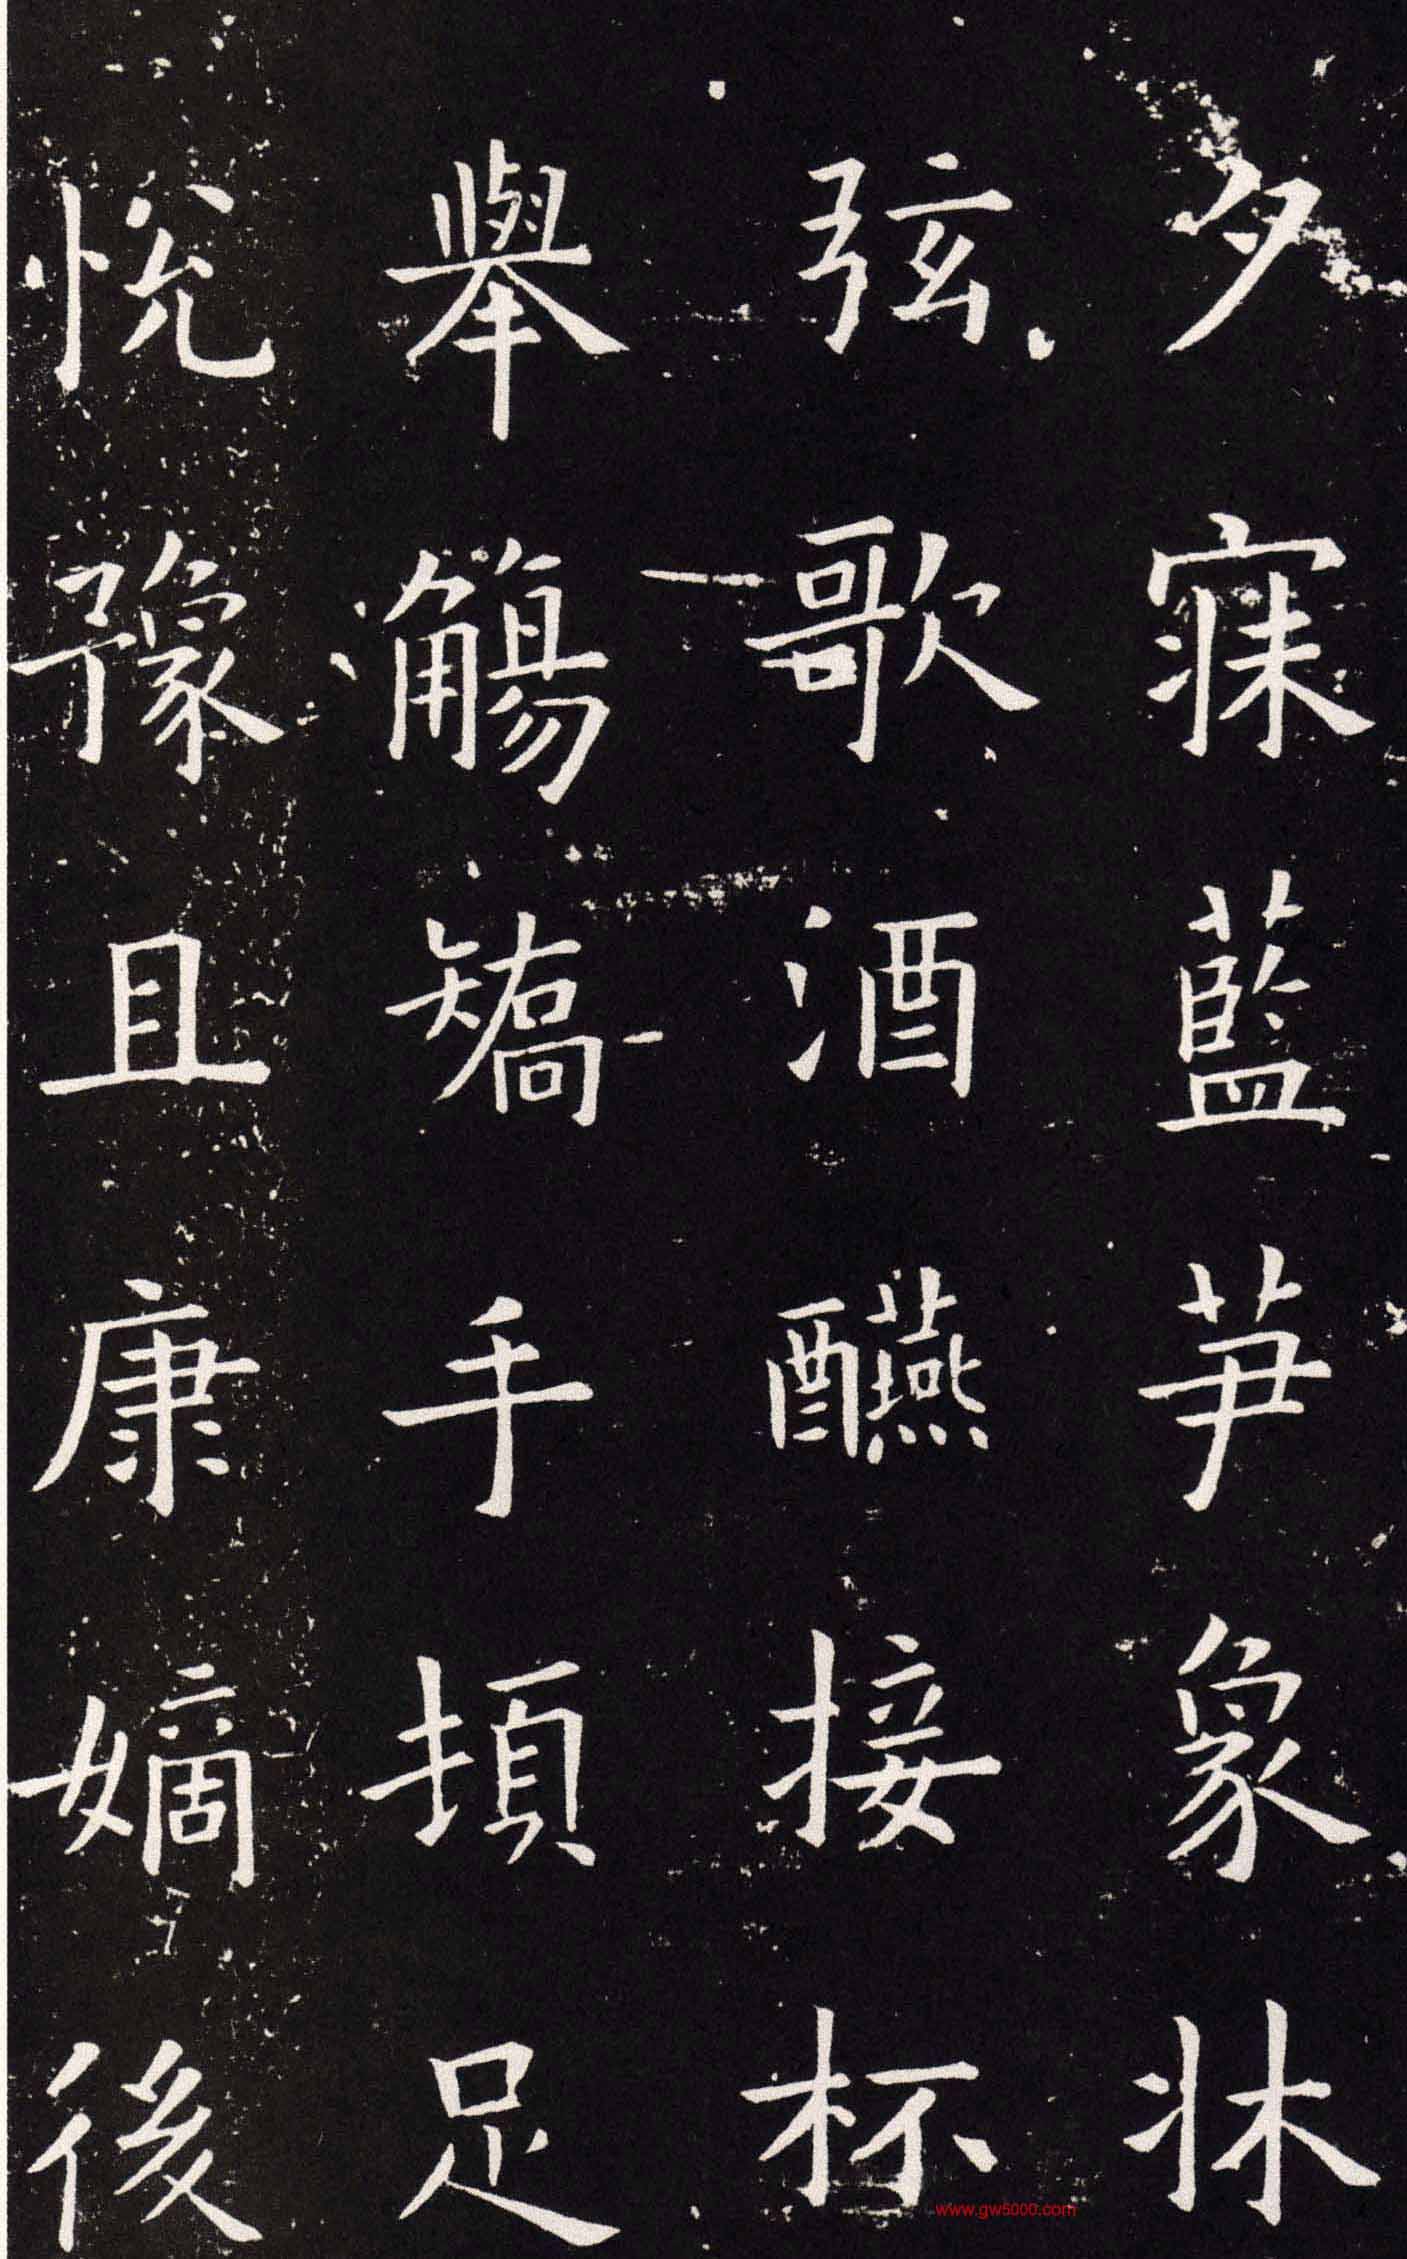 夕寐藍笋象牀
弦歌酒醼接杯
舉觴矯手頓足
悅豫且康嫡後
www.gw5000.com